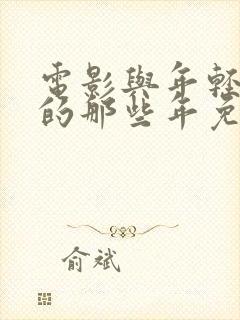 電影與年輕
的那些年免
俞斌